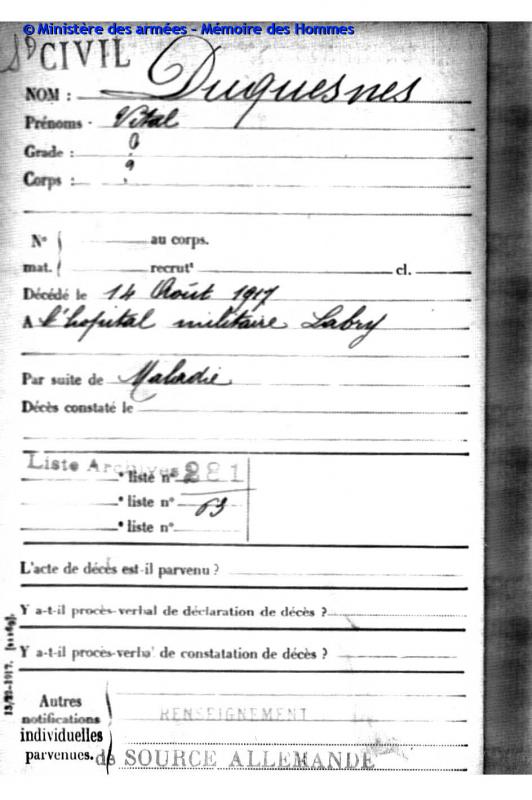 © Ministère des armées - Mémoire des Hommes
CIVIL
NOM : Duquesnes
Prénoms - Vital
Grade :
Corps :
N° au corps.
mat. recrutt cl.
Décédé le 14 Août 1917
A l'hopital militaire Labry
Par suite de Maladie
Décès constaté le
Liste Archives 281
° liste n°
° liste n° 63
° liste n°
L'acte de décès est-il parvenu ?
Y a-t-il procès-verbal de déclaration de décès ?
Y a-t-il procès-verbal de constatation de décès ?
Autres
notifications
individuelles
parvenues.
RENSEIGNEMENT
de SOURCE ALLEMANDE